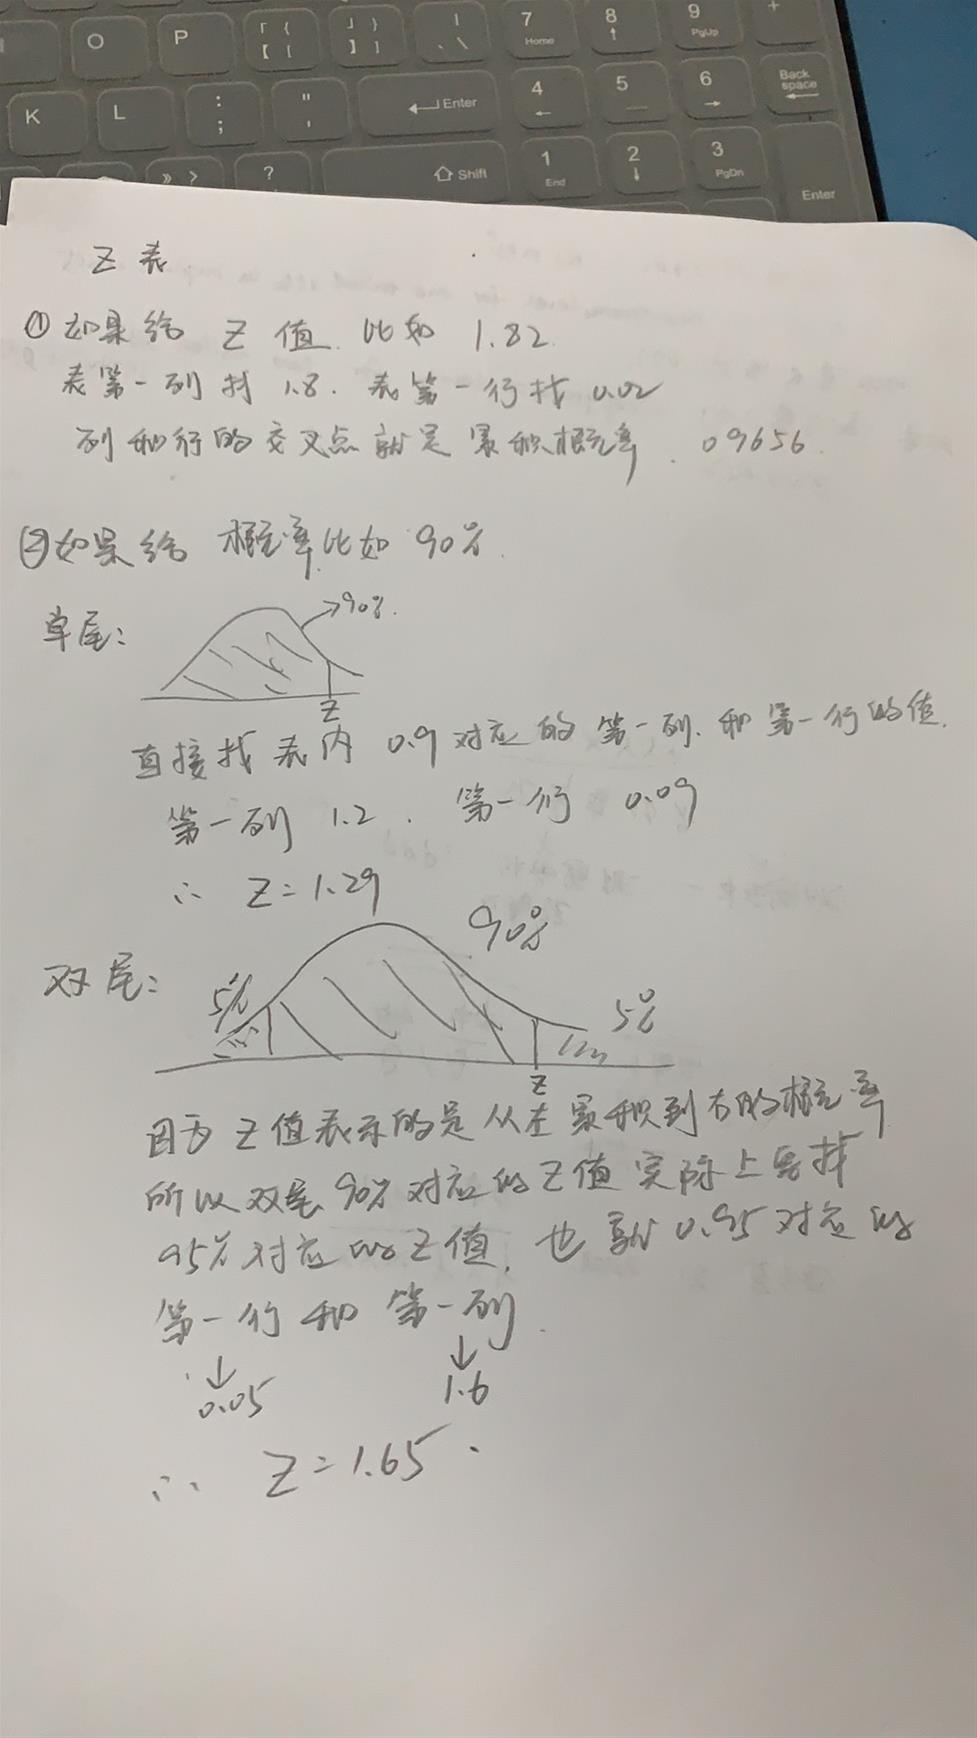 O
P
「 {
【 [
」 }
】 ]
|
、 \
7
Home
8
↑
9
PgUp
+
K
L
:
;
"
'
Enter
4
←
5
6
→
Back
space
» >
?
Shift
1
End
2
↓
3
PgDn
Enter
Z 表
① 如果给 Z 值. 比如 1.82.
表第一列找 1.8. 表第一行找 0.02
列和行的交叉点就是累积概率. 09656.
② 如果给 概率比如 90%.
单尾:
90%.
Z
直接找表内 0.9 对应的第一列. 和第一行的值.
第一列 1.2 . 第一行 0.09
∴ Z = 1.29
双尾:
90%
5%
5%
Z
因为 Z 值表示的是从左累积到右的概率
所以双尾 90% 对应的 Z 值实际上要找
95% 对应的 Z 值. 也就 0.95 对应的
第一行和第一列.
↓ ↓
0.05 1.6
∴ Z = 1.65.